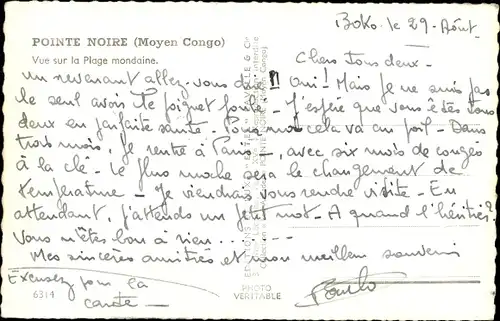 Boko. le 29. Août
POINTE NOIRE (Moyen Congo)
Vue sur la Plage mondaine.
Chers tous deux -
un revenant allez-vous dire !! Oui ! Mais je ne suis pas
le seul avoir le poignet foulé - J'espère que vous êtes tous
deux en parfaite santé - Pour moi cela va au poil - Dans
trois mois, je rentre à Paris -, avec six mois de congés
à la clé - Le plus moche sera le changement de
température - Je viendrai vous rendre visite - En
attendant, j'attends un petit mot - A quand l'héritier ?
Vous n'êtes bon à rien......
Mes sincères amitiés et mon meilleur souvenir
Excusez pour la
carte -
6314
PHOTO
VERITABLE